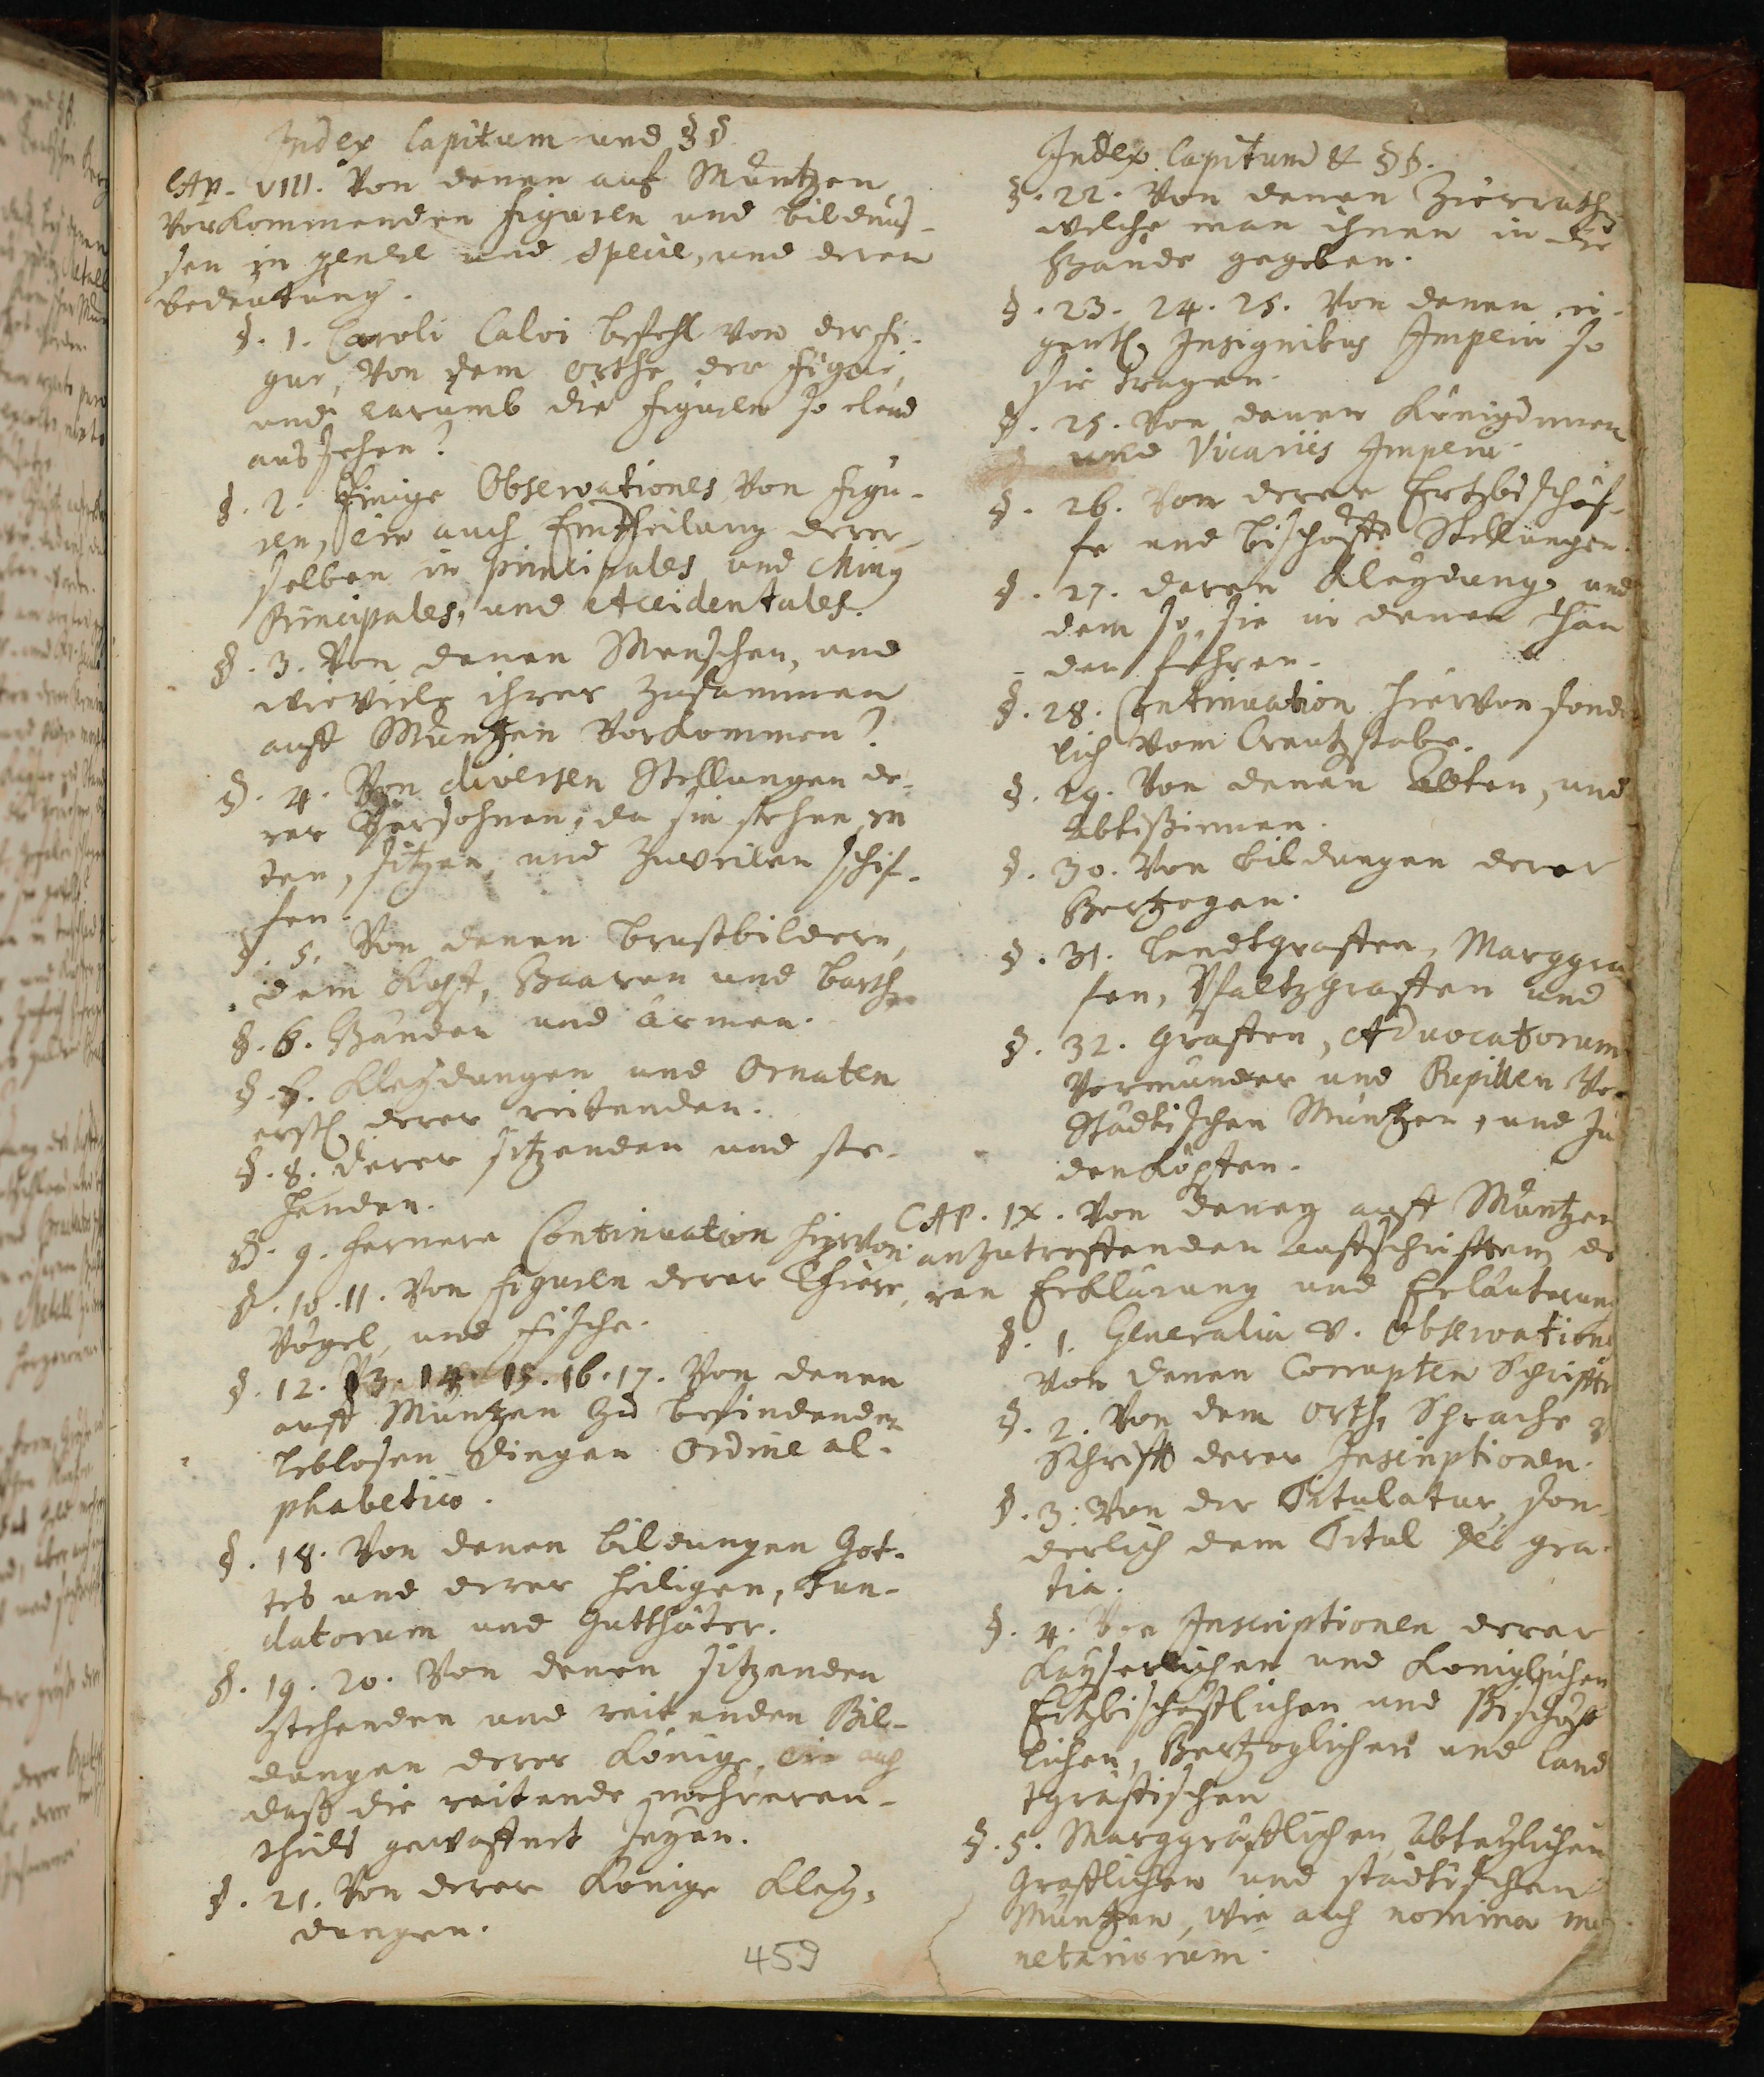 Index Capitum und §§
CAp. VIII. Von denen auf Müntzen
vorkommenden figuren und bildnüs-
sen in genere und specie, und deren
bedeutung.
§. 1. Caroli Calvi befehl von der fi-
gur, von dem orthe der figur,
und warumb die figuren so elend
aussehen?
§. 2. Einige Observationes von figu-
ren, wie auch Eintheilung derer-
selben in principales und Ming
Principales, und Accidentales.
§. 3. Von denen Menschen, und
wieviele ihrer zusammen
auff Müntzen vorkommen?
§. 4. Von diversen Stellungen de-
rer Persohnen, da sie stehen, rei
ten, sitzen, und zuweilen schif-
fen.
§. 5. Von denen brustbildern,
dem Kopf, Haaren und barth
§. 6. Händen und ärmen.
§. 7. Kleydungen und Ornaten
erstl. derer reitenden.
§. 8. derer sitzenden und ste-
henden.
§. 9. fernere Continuation hiervon.
§. 10. 11. Von figuren derer Thiere,
Vögel, und fische.
§. 12. 13. 14. 15. 16. 17. Von denen
auff Müntzen zu befindenden
leblosen dingen Ordine al-
phabetico.
§. 18. Von denen bildungen Got-
tes und derer heiligen, Fun-
datorum und Gutthäter.
§. 19. 20. Von denen sitzenden
stehenden und reitenden Bil-
dungen derer Könige, wie auch
daß die reitende mehreren-
theils gewaffnet seyen.
§. 21. Von derer Könige Kley-
dungen.
459
Index Capitum & §§.
§. 22. Von denen Zierrathen
welche man ihnen in die
Hände gegeben.
§. 23. 24. 25. Von denen ei-
gentl. Insignibus Imperii so
sie tragen.
§. 25. Von denen Königinnen
und Vicariis Imperii.
§. 26. Von derer Ertzbischöf-
fe und bischöffe Stellungen.
§. 27. deren Kleydung, und
dem so sie in denen Hän
den führen.
§. 28. Continuation hiervon sonder
lich vom Creutzstabe.
§. 29. Von denen Äbten, und
Äbtißinnen.
§. 30. Von bildungen derer
Hertzogen.
§. 31. Landtgraffen, Marggra
fen, Pfaltzgraffen und
§. 32. Graffen, Advocatorum
Vormünder und Pupillen
Städtischen Müntzen, und Ju
denköpfen.
CAP. IX. Von denen auff Müntzen
anzutreffenden auffschrifften, de
ren Erklärung und Erläuterung
§. 1. Generalia &. Observatione
von denen Corrupten Schrifft
§. 2. Von dem orth, Sprache
Schrifft derer Inscriptionen.
§. 3. Von der Titulatur, son-
derlich dem Titul Dei gra-
tia.
§. 4. Von Inscriptionen derer
Kayserlichen und Königlichen
Ertzbischöfflichen und Bischöff
lichen, Hertzoglichen und Land
tgräffischen
§. 5. Marggräfflichen, Abteylichen
Gräfflichen und städtischen
Müntzen, wie auch nomina mo
netariorum.